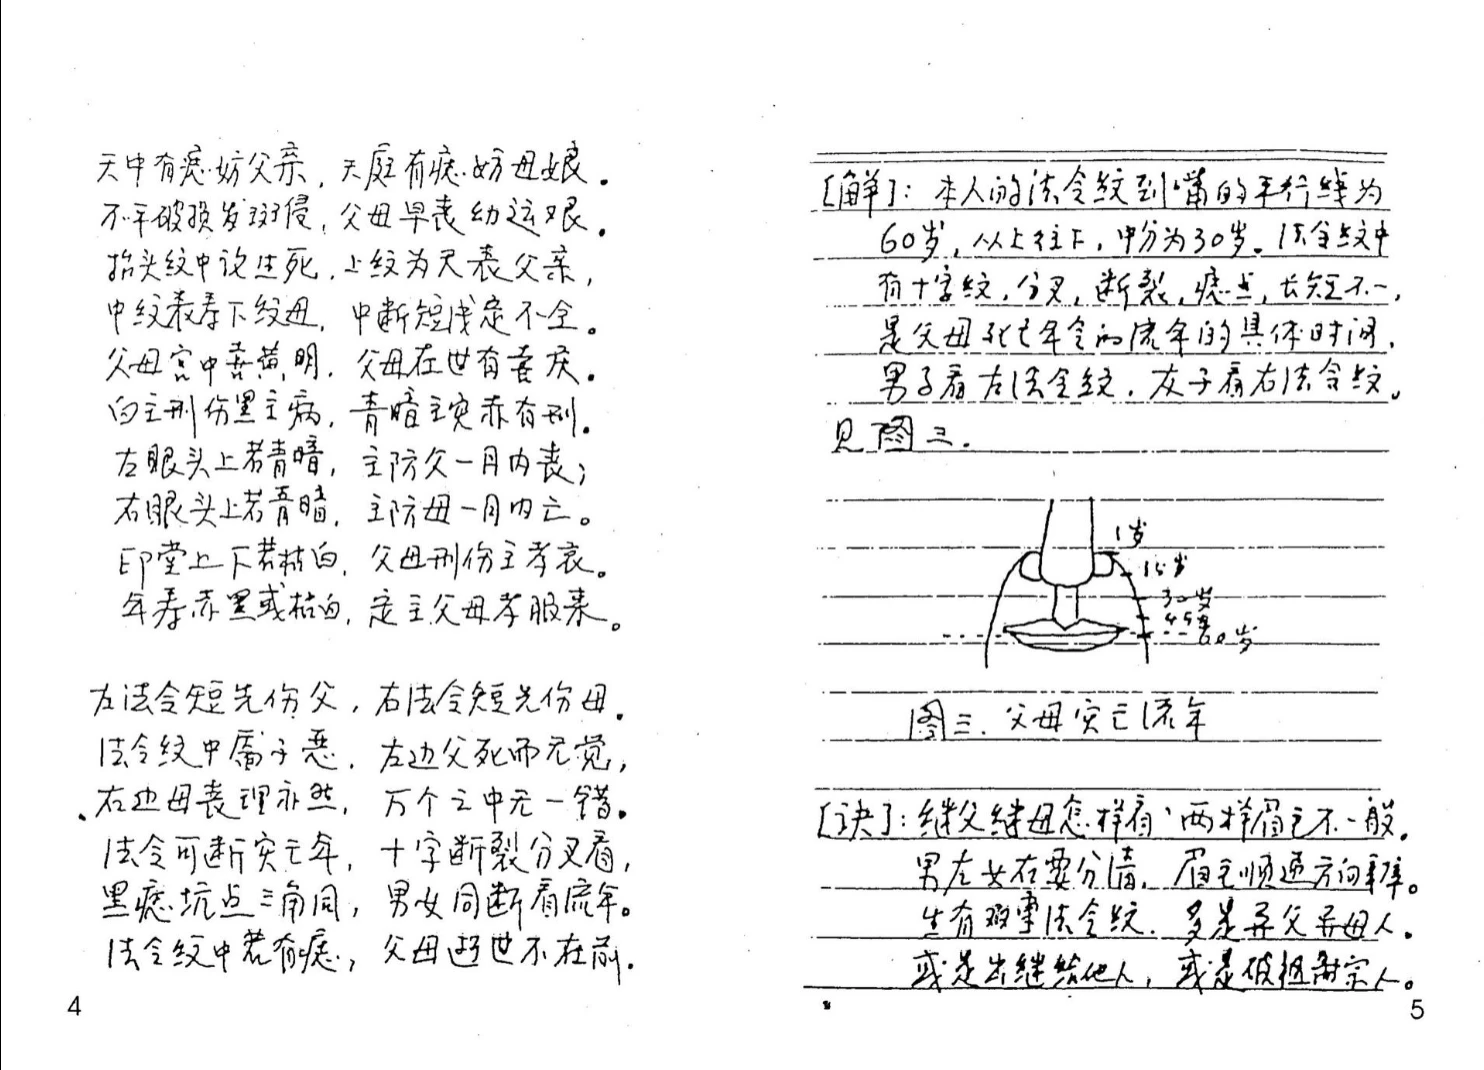 天中有痣妨父亲，天庭有痣妨母娘。
不平破损发斑侵，父母早丧幼运艰。
抬头纹中论生死，上纹为天表父亲，
中纹表寿下纹母，中断短浅定不全。
父母宫中喜黄明，父母在世有喜庆。
白主刑伤黑主病，青暗主灾赤有刑。
左眼头上若青暗，主防父一月内丧；
右眼头上若青暗，主防母一月内亡。
印堂上下若枯白，父母刑伤主孝哀。
年寿赤黑或枯白，定主父母孝服来。
左法令短先伤父，右法令短先伤母。
法令纹中属子恶，左边父死而无觉，
右边母丧理亦然，万个之中无一错。
法令可断灾亡年，十字断裂分叉看，
黑痣坑点三角同，男女同断看流年。
法令纹中若有痣，父母逝世不在前。
4
[解]：本人的法令纹到嘴的平行线为
60岁，从上往下，中分为30岁。法令纹中
有十字纹，分叉，断裂，痣点，长短不一，
是父母死亡年令的流年的具体时间，
男子看左法令纹，女子看右法令纹。
见图三.
1岁
15岁
30岁
45岁
60岁
图三. 父母灾亡流年
[诀]：继父继母怎样看，两样眉毛不一般。
男左女右要分清，眉毛顺逆方向辨。
生有双重法令纹，多是异父异母人。
或是出继给他人，或是破祖离宗人。
5